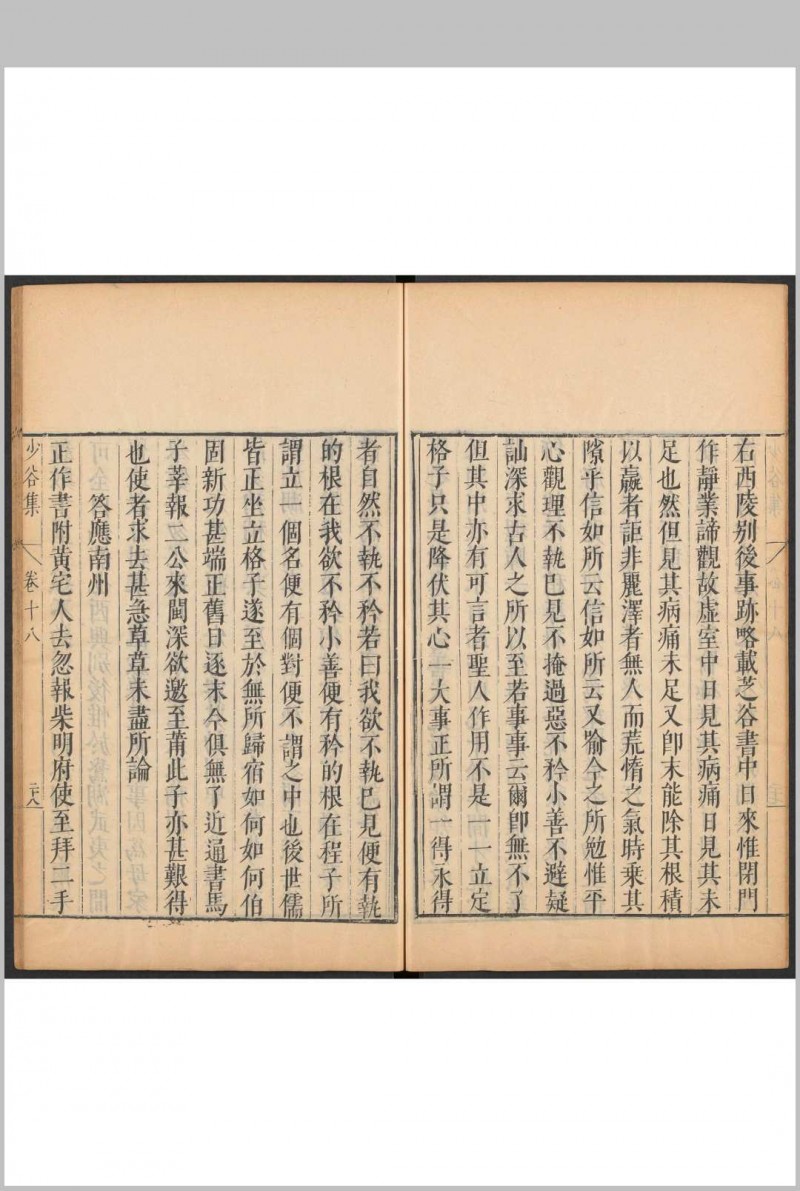 右西陵別後事跡略載芝谷書中日來惟閉門
作靜業諦觀故虛室中日見其病痛日見其未
足也然但見其病痛未足又卽未能除其根積
以羸者詎非麗澤者無人而荒惰之氣時乘其
隙乎信如所云信如所云又喻今之所勉惟平
心觀理不執巳見不掩過惡不矜小善不避疑
訕深求古人之所以至若事事云爾卽無不了
但其中亦有可言者聖人作用不是一一立定
格子只是降伏其心一大事正所謂一得永得
者自然不執不矜若曰我欲不執巳見便有執
的根在我欲不矜小善便有矜的根在程子所
謂立一個名便有個對便不謂之中也後世儒
皆正坐立格子遂至於無所歸宿如何如何伯
固新功甚端正舊日逐末今俱無了近通書馬
子莘報二公來閩深欲邀至莆此子亦甚艱得
也使者求去甚急草草未盡所論
答應南州
正作書附黃宅人去忽報柴明府使至拜二手
少谷集
卷十八
二十八